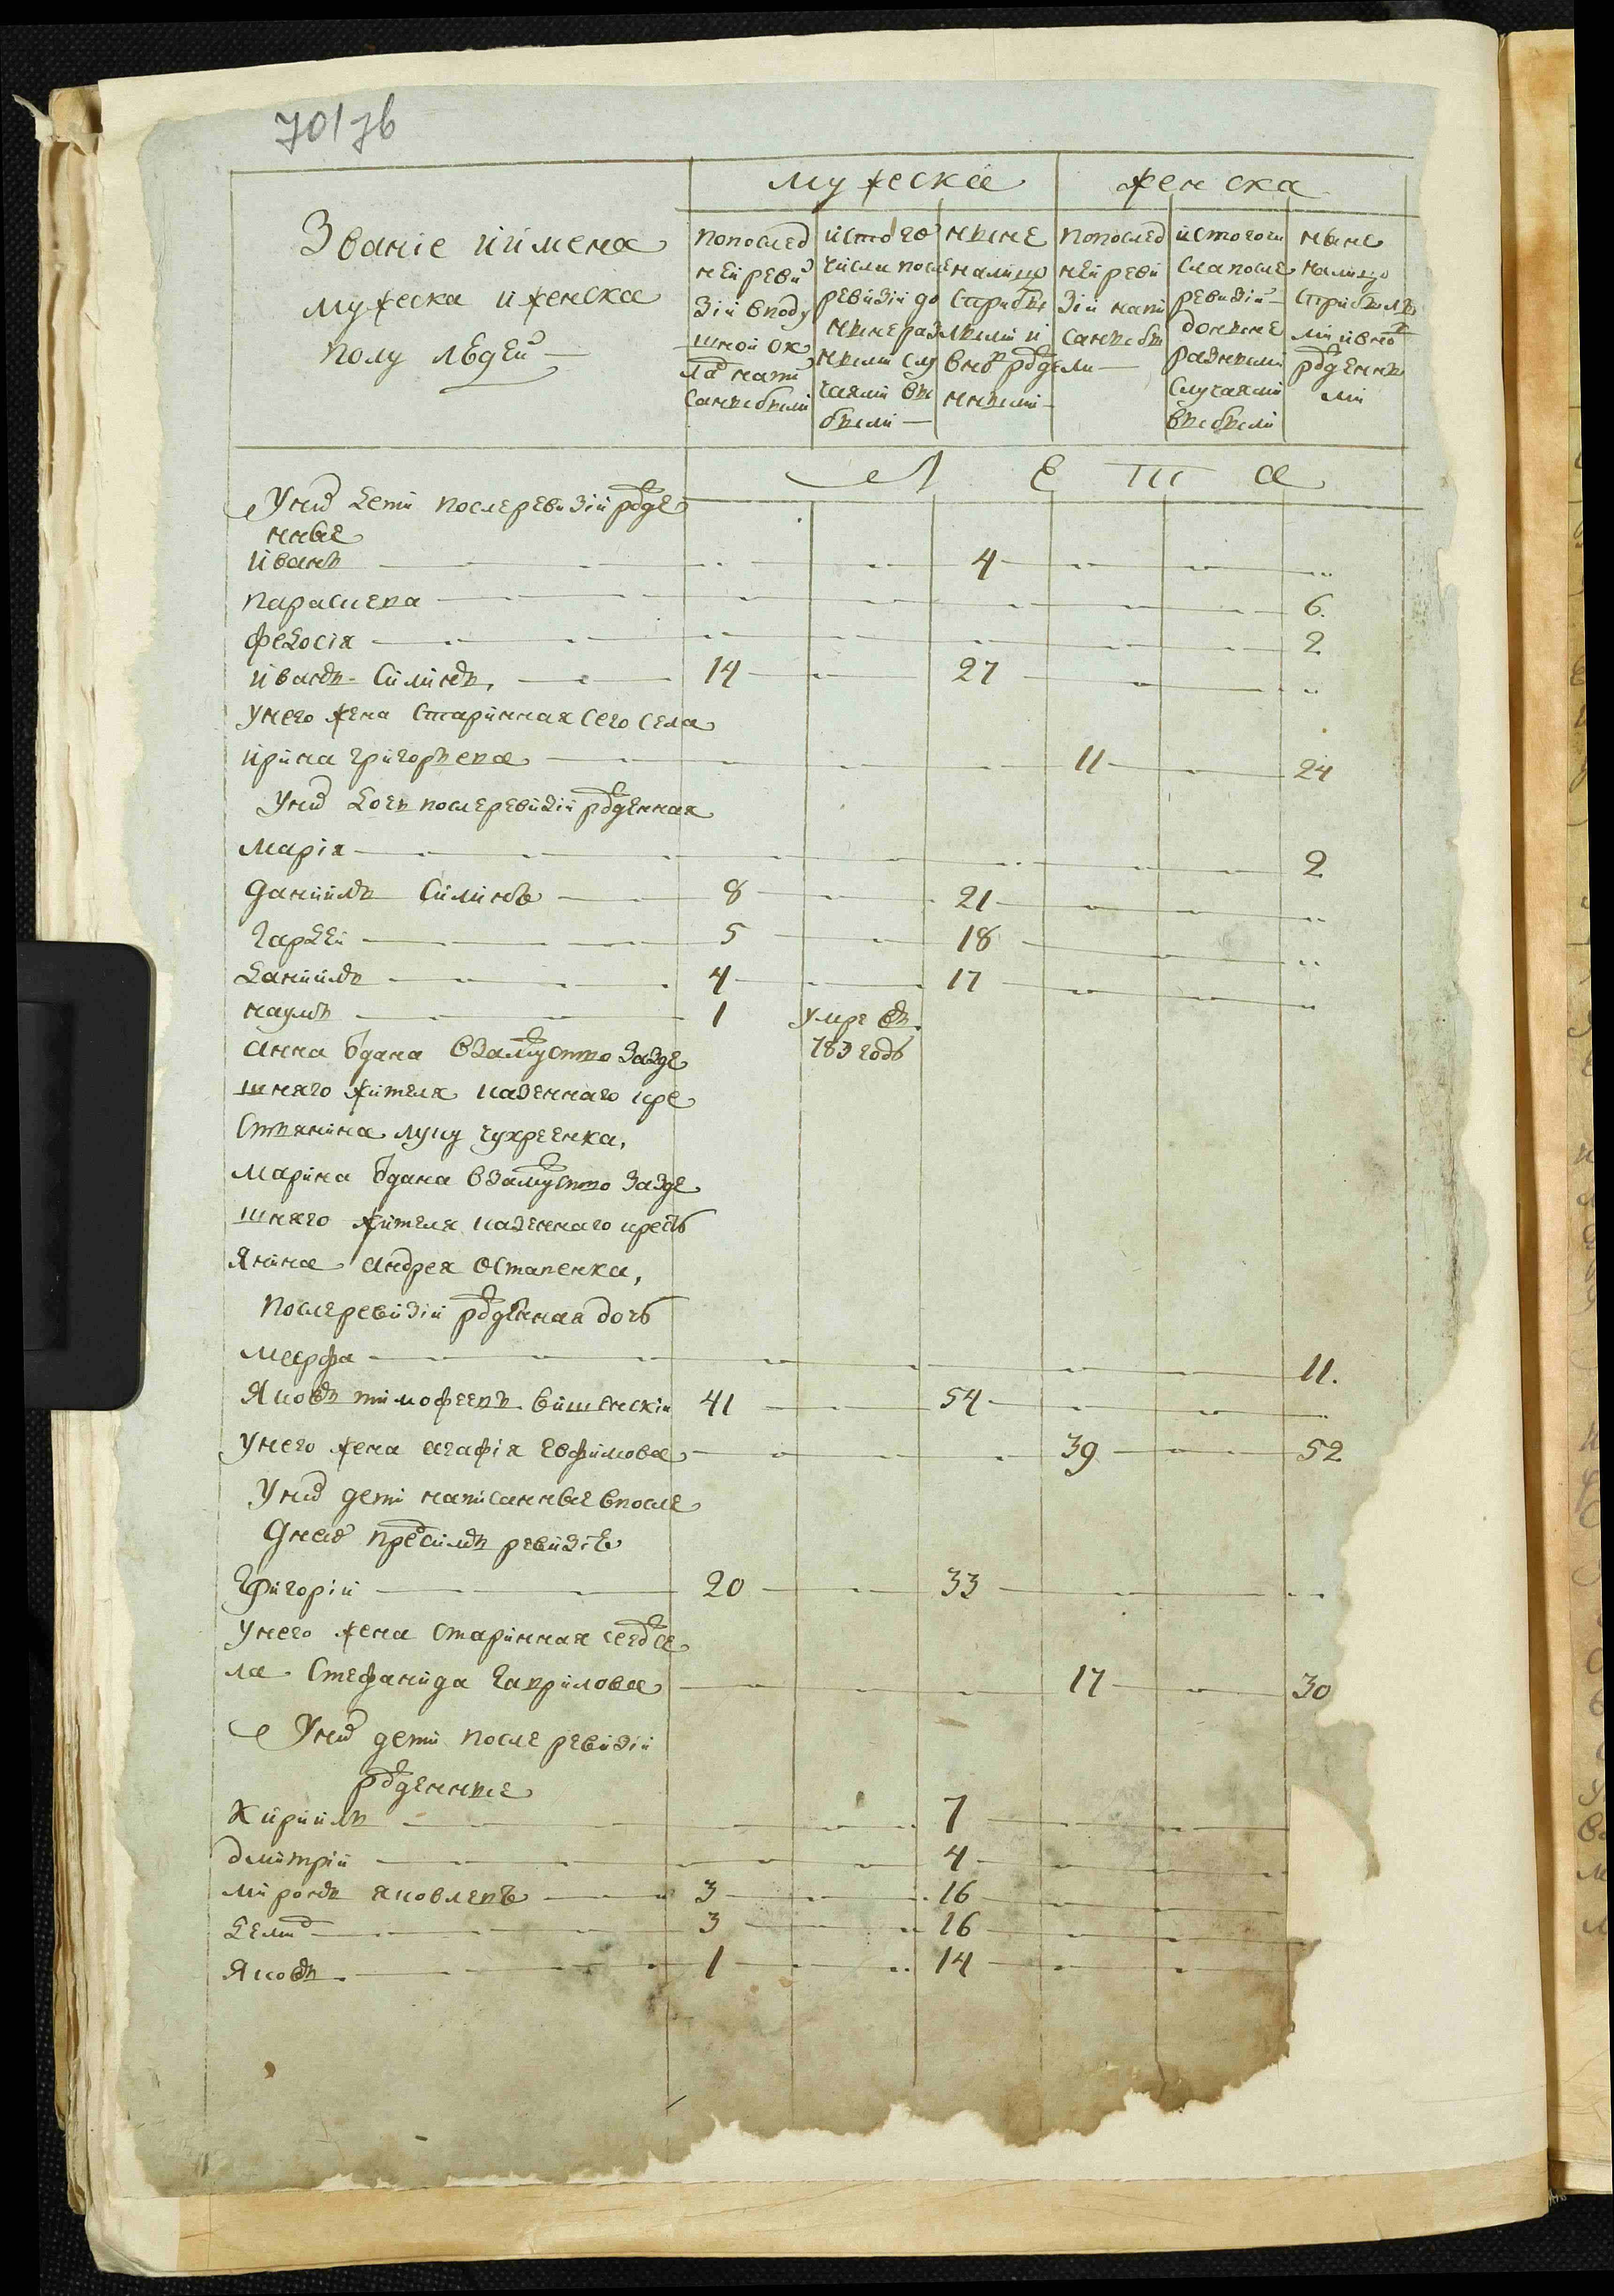 70/76
Званіе и имена
мужеска и женска
полу людей —
мужеска
женска
попослед
ней реви
зіи впод у
шной ок
лад напи
саны были
и стого
числа после
ревизіи до
ныне раз
ными слу
чаями вы
были —
ныне
на лицо
с прибы
лыми и
вновь рожде
нными —
попослед
ней реви
зіи напи
саны бы
ли —
и стого чи
сла после
ревизіи
до ныне
разными
случаями
выбыли
ныне
на лицо
с прибылы
ми и вновь
рожденны
ми
Л Е Т А
У них дети после ревизіи рожде
нные
Иванъ 4
Параскева 6.
Феdосія 2
Иванъ Силинъ, 14 27
У него жена старинная сего села
Ирина Григорьева 11 24
У них дочь после ревизіи рожденная
Марія 2
Даниилъ Силинъ 8 21
Гардей 5 18
Даниилъ 4 17
Наумъ 1 умре въ
783 годѣ
Анна отдана взамужство за зде
шняго жителя казеннаго кре
стьянина Луку Чухреенка,
Марина отдана взамужство за зде
шняго жителя казеннаго кресть
янина Андрея Остапенка,
После ревизіи рожденная дочь
Марфа 11.
Яковъ Тимофеевъ Вишенскій 41 54
У него жена Агафія Ефимова 39 52
У них дети написанные в после
дней пред симъ ревизіѣ
Григорій 20 33
У него жена старинная сего же се
ла Стефанида Гаврилова 17 30
У них дети после ревизіи
рожденные
Кирилъ 7
Дмитрій 4
Миронъ Яковлевъ 3 16
Демид 3 16
Яковъ 1 14